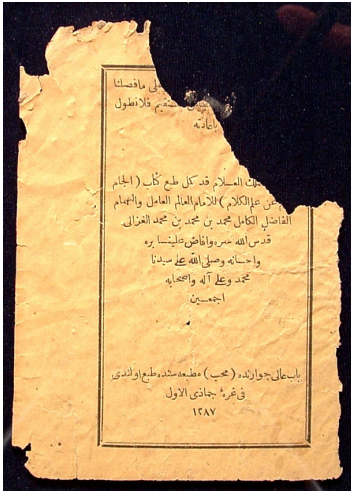 على ما فصلنا
فلا نطول
باعادته
الملك العلام قد كمل طبع كتاب (الجام
عن علم الكلام) للامام العالم العامل والهمام
الفاضل الكامل محمد بن محمد بن محمد الغزالى
قدس الله سره وافاض علينا بره
واحسانه وصلى الله على سيدنا
محمد وعلى آله واصحابه
اجمعين
باب عالى جوارنده (محب) مطبعه سنده طبع اولندى
فى غرة جماذى الاول
١٢٨٧